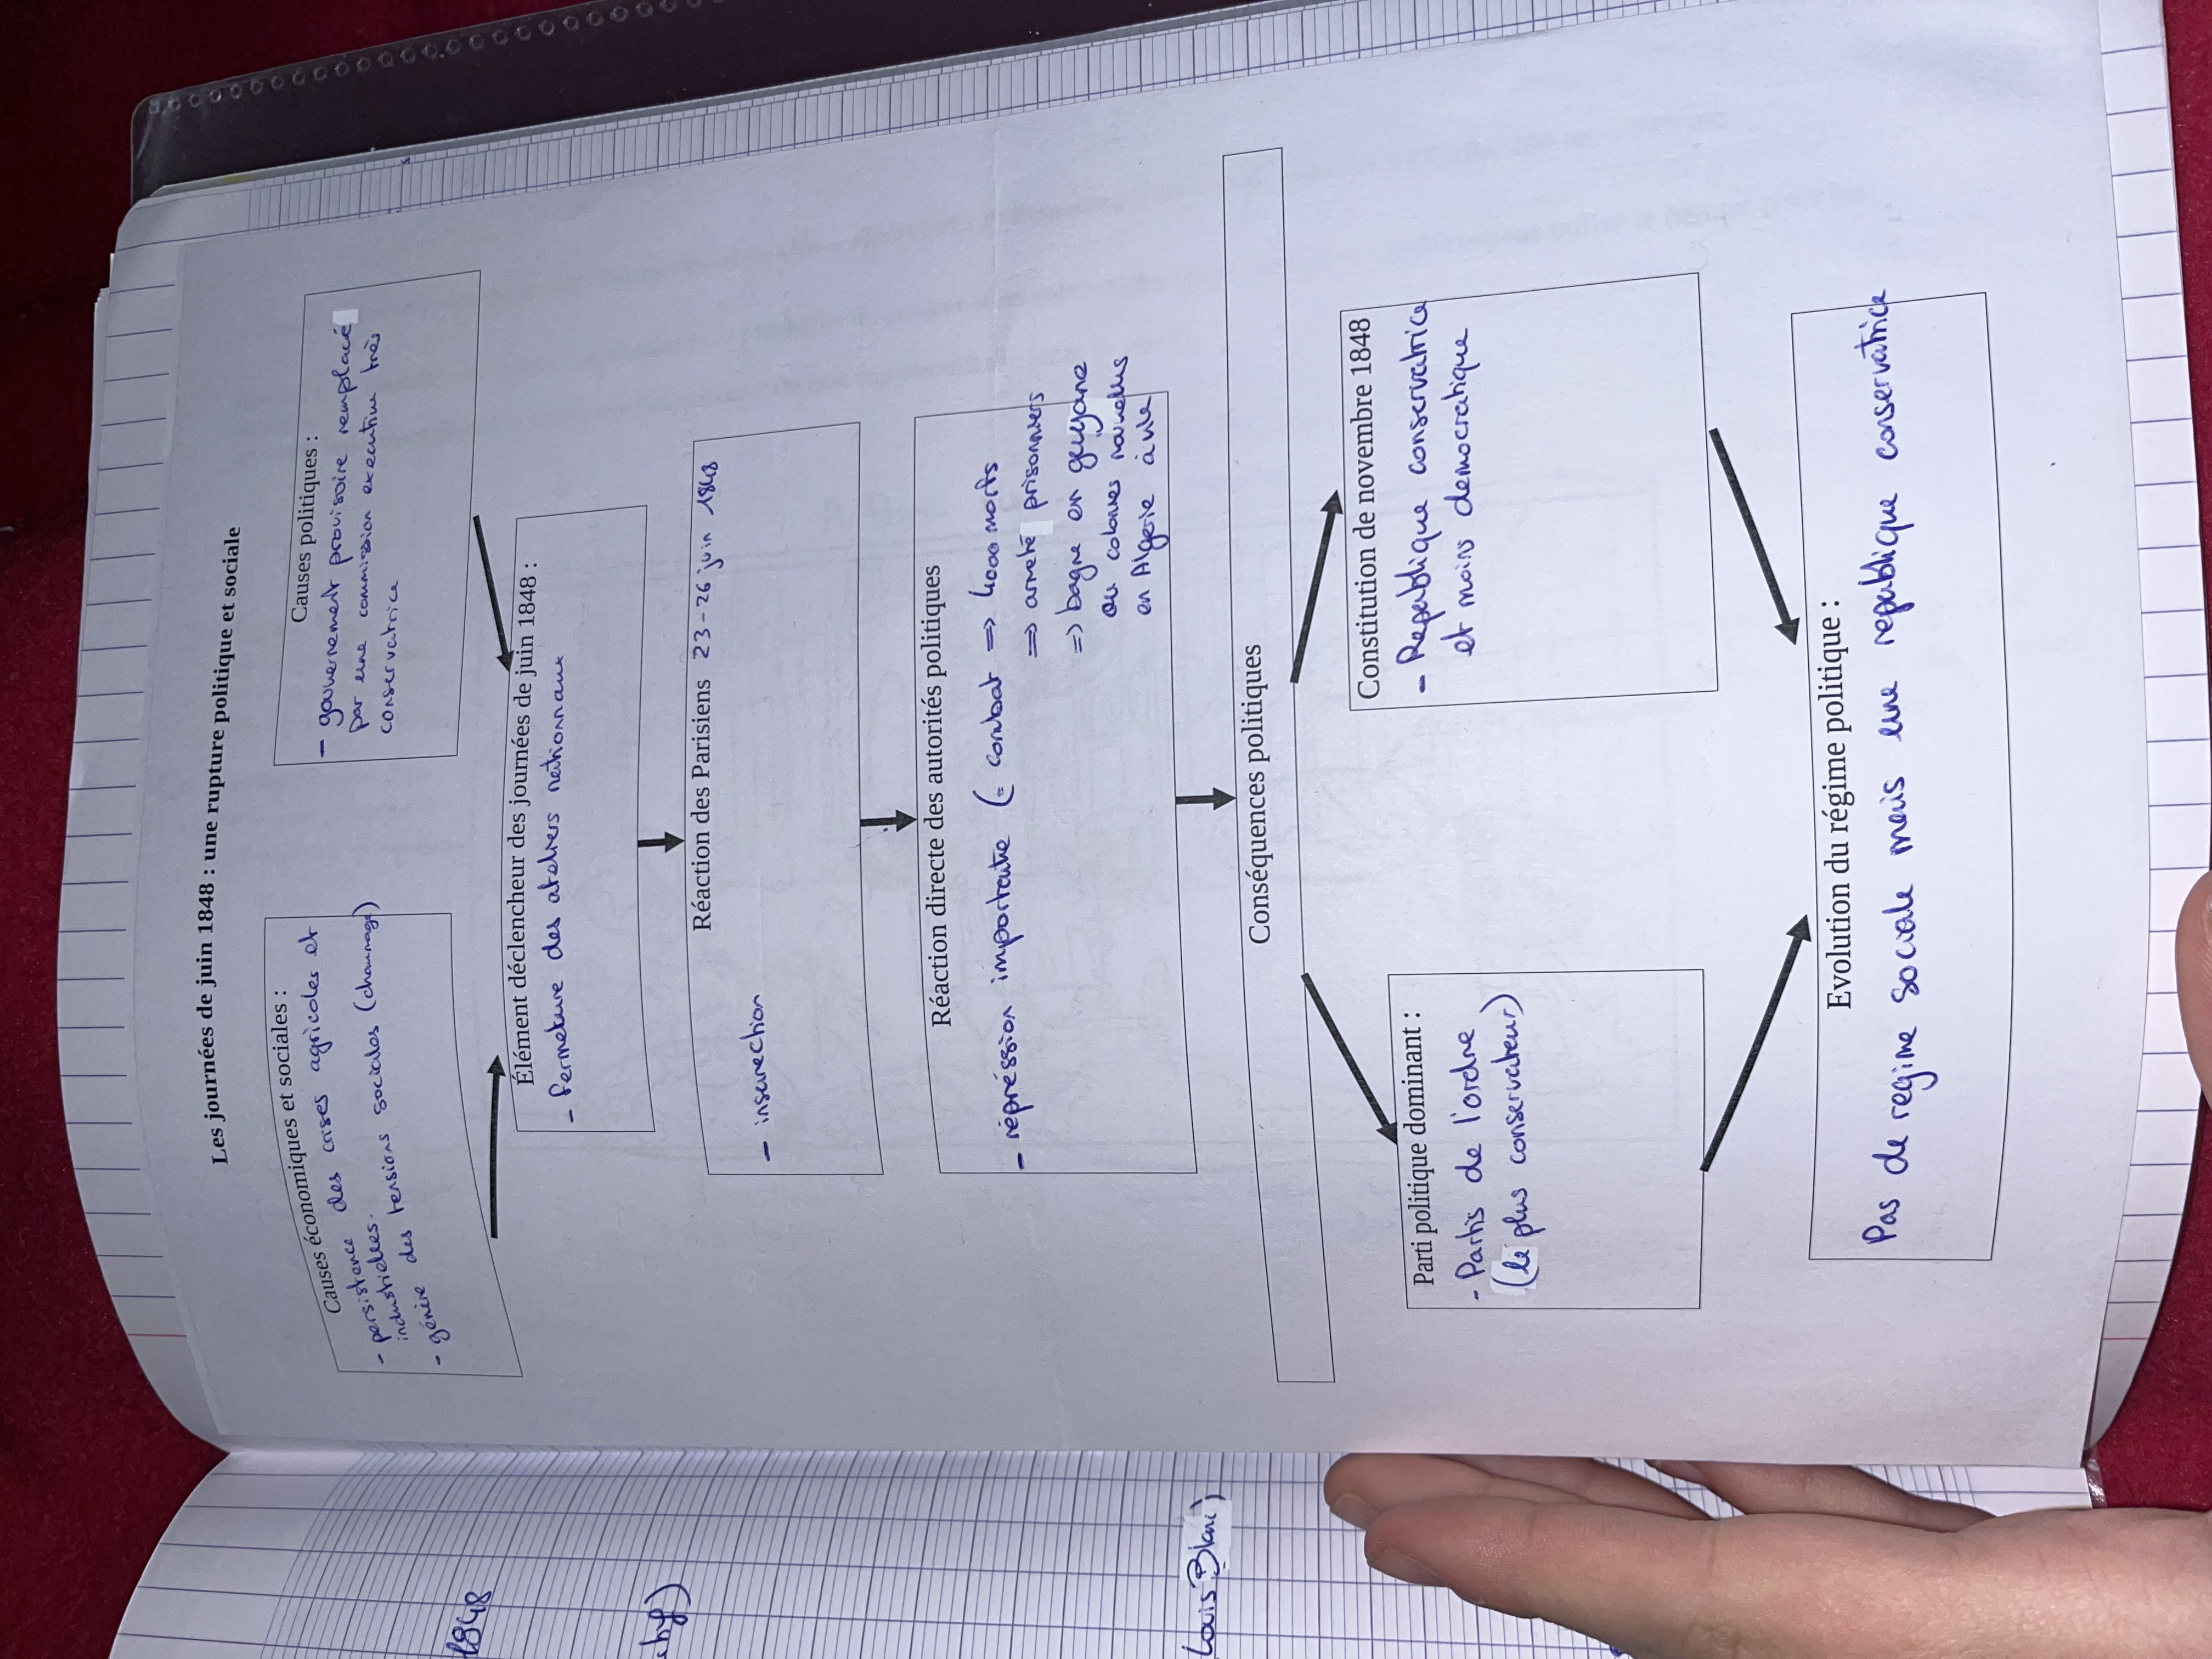 Les journées de juin 1848 : une rupture politique et sociale
Causes économiques et sociales :
- persistence des crises agricoles et
industrielles.
- génère des tensions sociales (chaumage)
Causes politiques :
- gouvernement provisoire remplacé
par une commission executive très
conservatrice
Élément déclencheur des journées de juin 1848 :
- fermeture des ateliers nationnaux
Réaction des Parisiens 23-26 juin 1848
- insurection
Réaction directe des autorités politiques
- répréssion importante (= combat => 4000 morts
=> arreté prisonniers
=> bagne en guyane
ou colonnes nouvelles
en Algerie à vie
Conséquences politiques
Parti politique dominant :
- Partis de l'ordre
(le plus conservateur)
Constitution de novembre 1848
- Republique conservatrice
et moins democratique
Evolution du régime politique :
Pas de regime sociale mais une republique conservatrice
1848
Louis Blanc)